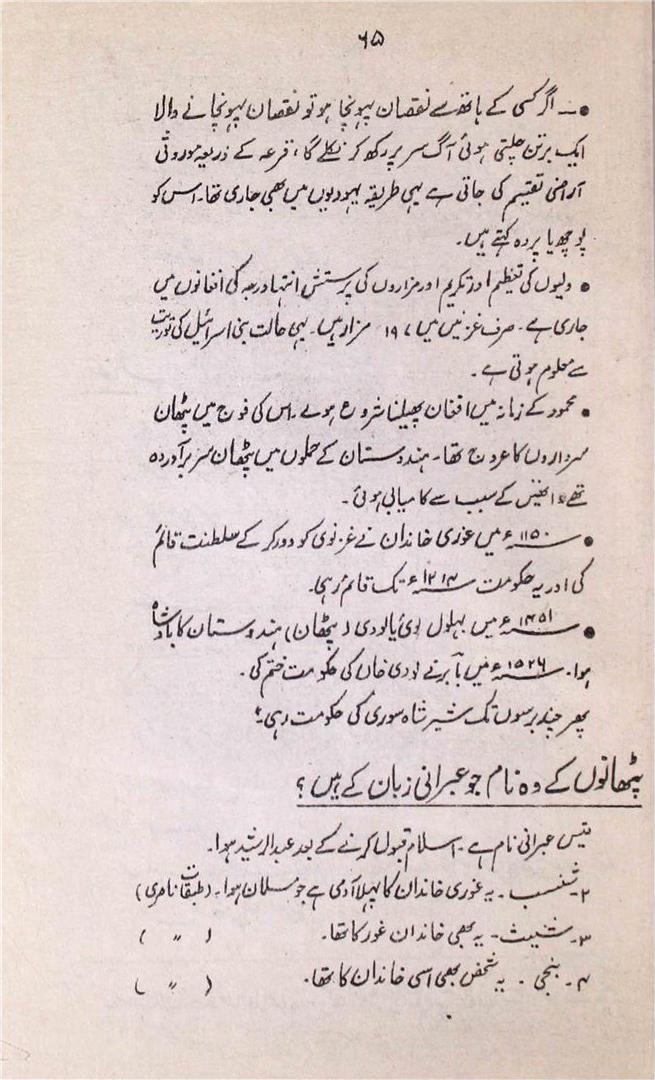 ۶۵
• — اگر کسی کے ہاتھ سے نقصان پہونچا ہو تو نقصان پہونچانے والا
ایک برتن جلتی ہوئی آگ سر پر رکھ کر نکلے گا، قرعہ کے ذریعہ موروثی
آراضی تقسیم کی جاتی ہے یہی طریقہ یہودیوں میں بھی جاری تھا۔ اس کو
پوچھویا پردہ کہتے ہیں۔
• ولیوں کی تعظیم اور تکریم اور مزاروں کی پرستش انتہا درجہ کی افغانوں میں
جاری ہے۔ صرف غزنیں میں ۱۹۷ مزار ہیں۔ یہی حالت بنی اسرائیل کی توریت
سے معلوم ہوتی ہے۔
• محمود کے زمانہ میں افغان پھیلنا شروع ہوئے۔ اس کی فوج میں پٹھان
سرداروں کا عروج تھا۔ ہندوستان کے حملوں میں پٹھان سربرآوردہ
تھے انھیں کے سبب سے کامیابی ہوئی۔
• ۱۱۵۰ء میں غوری خاندان نے غزنوی کو دور کر کے سلطنت قائم
کی اور یہ حکومت ۱۲۱۴ء تک قائم رہی۔
• ۱۴۵۱ء میں بہلول لوئی یا لودی (پٹھان) ہندوستان کا بادشاہ
ہوا۔ ۱۵۲۶ء میں بابر نے لودی خاں کی حکومت ختم کی۔
پھر چند برسوں تک شیر شاہ سوری کی حکومت رہی۔
پٹھانوں کے وہ نام جو عبرانی زبان کے ہیں؟
قیس عبرانی نام ہے۔ اسلام قبول کرنے کے بعد عبدالرشید ہوا۔
۲۔ شنسب۔ یہ غوری خاندان کا پہلا آدمی ہے جو مسلمان ہوا۔ (طبقات ناصری)
۳۔ شیث۔ یہ بھی خاندان غور کا تھا۔ ( 〃 )
۴۔ بنجی۔ یہ شخص بھی اسی خاندان کا تھا۔ ( 〃 )